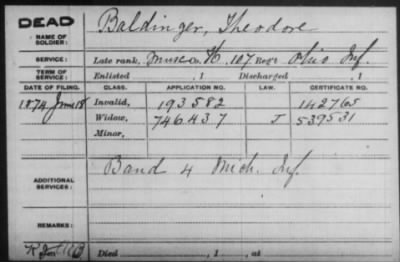 DEAD
NAME OF SOLDIER: Baldinger, Theodore
SERVICE: Late rank, Mus Co. K, 107 Reg't Ohio Inf.
TERM OF SERVICE: Enlisted , 1 Discharged , 1
DATE OF FILING. CLASS. APPLICATION NO. LAW. CERTIFICATE NO.
1874 June 18 Invalid, 193582 142765
Widow, 746437 J 539531
Minor,
ADDITIONAL SERVICES: Band 4 Mich. Inf.
REMARKS:
Died , 1 , at